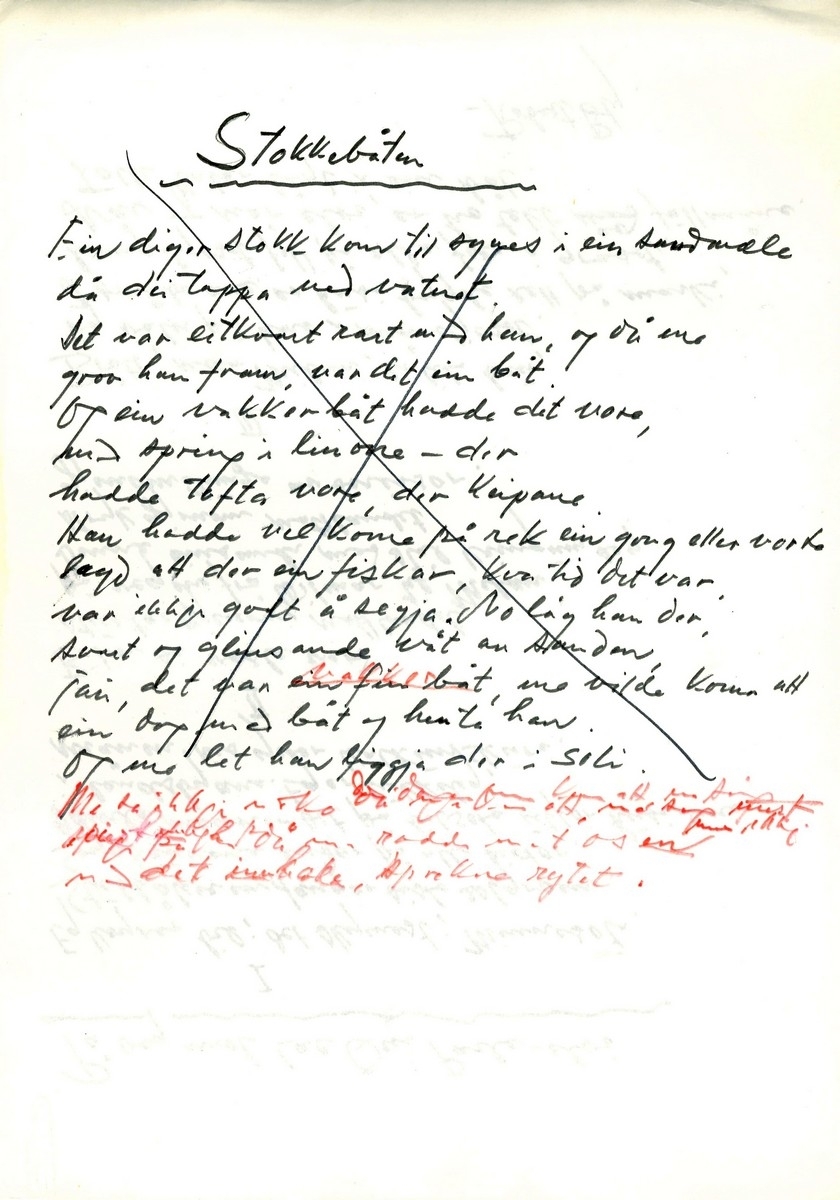 Stokkebåten
Ein diger stokk kom til synes i ein sandmæle
då dei tappa ned vatnet.
Det var eitkvart rart med han, og då me
grov han fram, var det ein båt.
Og ein vakker båt hadde det vore,
med spring i linone – der
hadde tofta vore, der keipane.
Han hadde vel kome på rek ein gong eller vorte
lagd att der ein fiskar, kva tid det var,
var ikkje godt å segja. No låg han der,
svart og glinsande våt av sanden,
Jau, det var ein fin båt, me vilde koma att
vakker
ein dag med båt og henta han.
Og me let han liggja der i soli.
Me sa ikkje noko
då me rodde mot os
med det inhola, sprokne rytet.